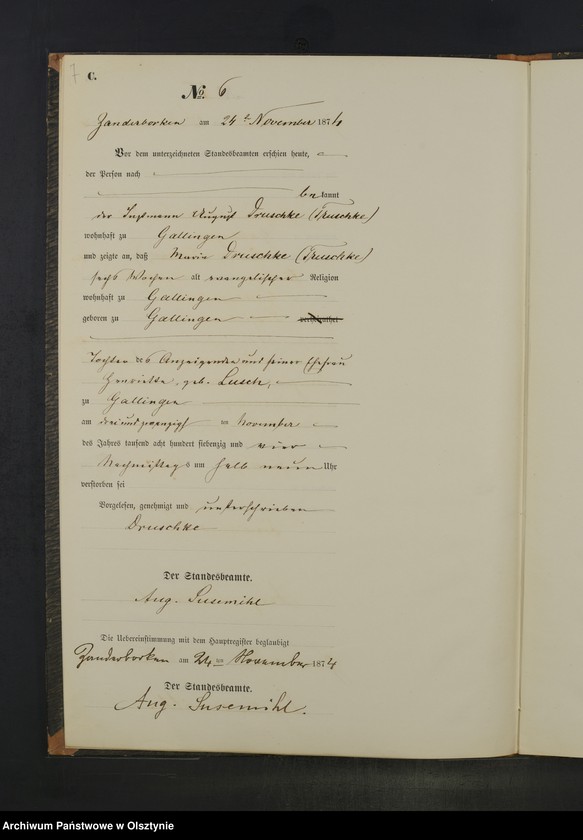 7
C.
No. 6
Zanderborken am 24 t November 1874
Vor dem unterzeichneten Standesbeamten erschien heute,
der Person nach
bekannt
der Instmann August Druschke (Truschke)
wohnhaft zu Gallingen
und zeigte an, daß Maria Druschke (Truschke)
sechs Wochen alt evangelischer Religion
wohnhaft zu Gallingen
geboren zu Gallingen verheirathet
Tochter des Anzeigenden und seiner Ehefrau
Henriette, geb. Lusch,
zu Gallingen
am dreiundzwanzigst ten November
des Jahres tausend acht hundert siebenzig und vier
Nachmittags um halb neun Uhr
verstorben sei
Vorgelesen, genehmigt und unterschrieben
Druschke
Der Standesbeamte.
Aug. Susemihl
Die Uebereinstimmung mit dem Hauptregister beglaubigt
Zanderborken am 24 ten November 1874
Der Standesbeamte.
Aug. Susemihl.
Archiwum Państwowe w Olsztynie